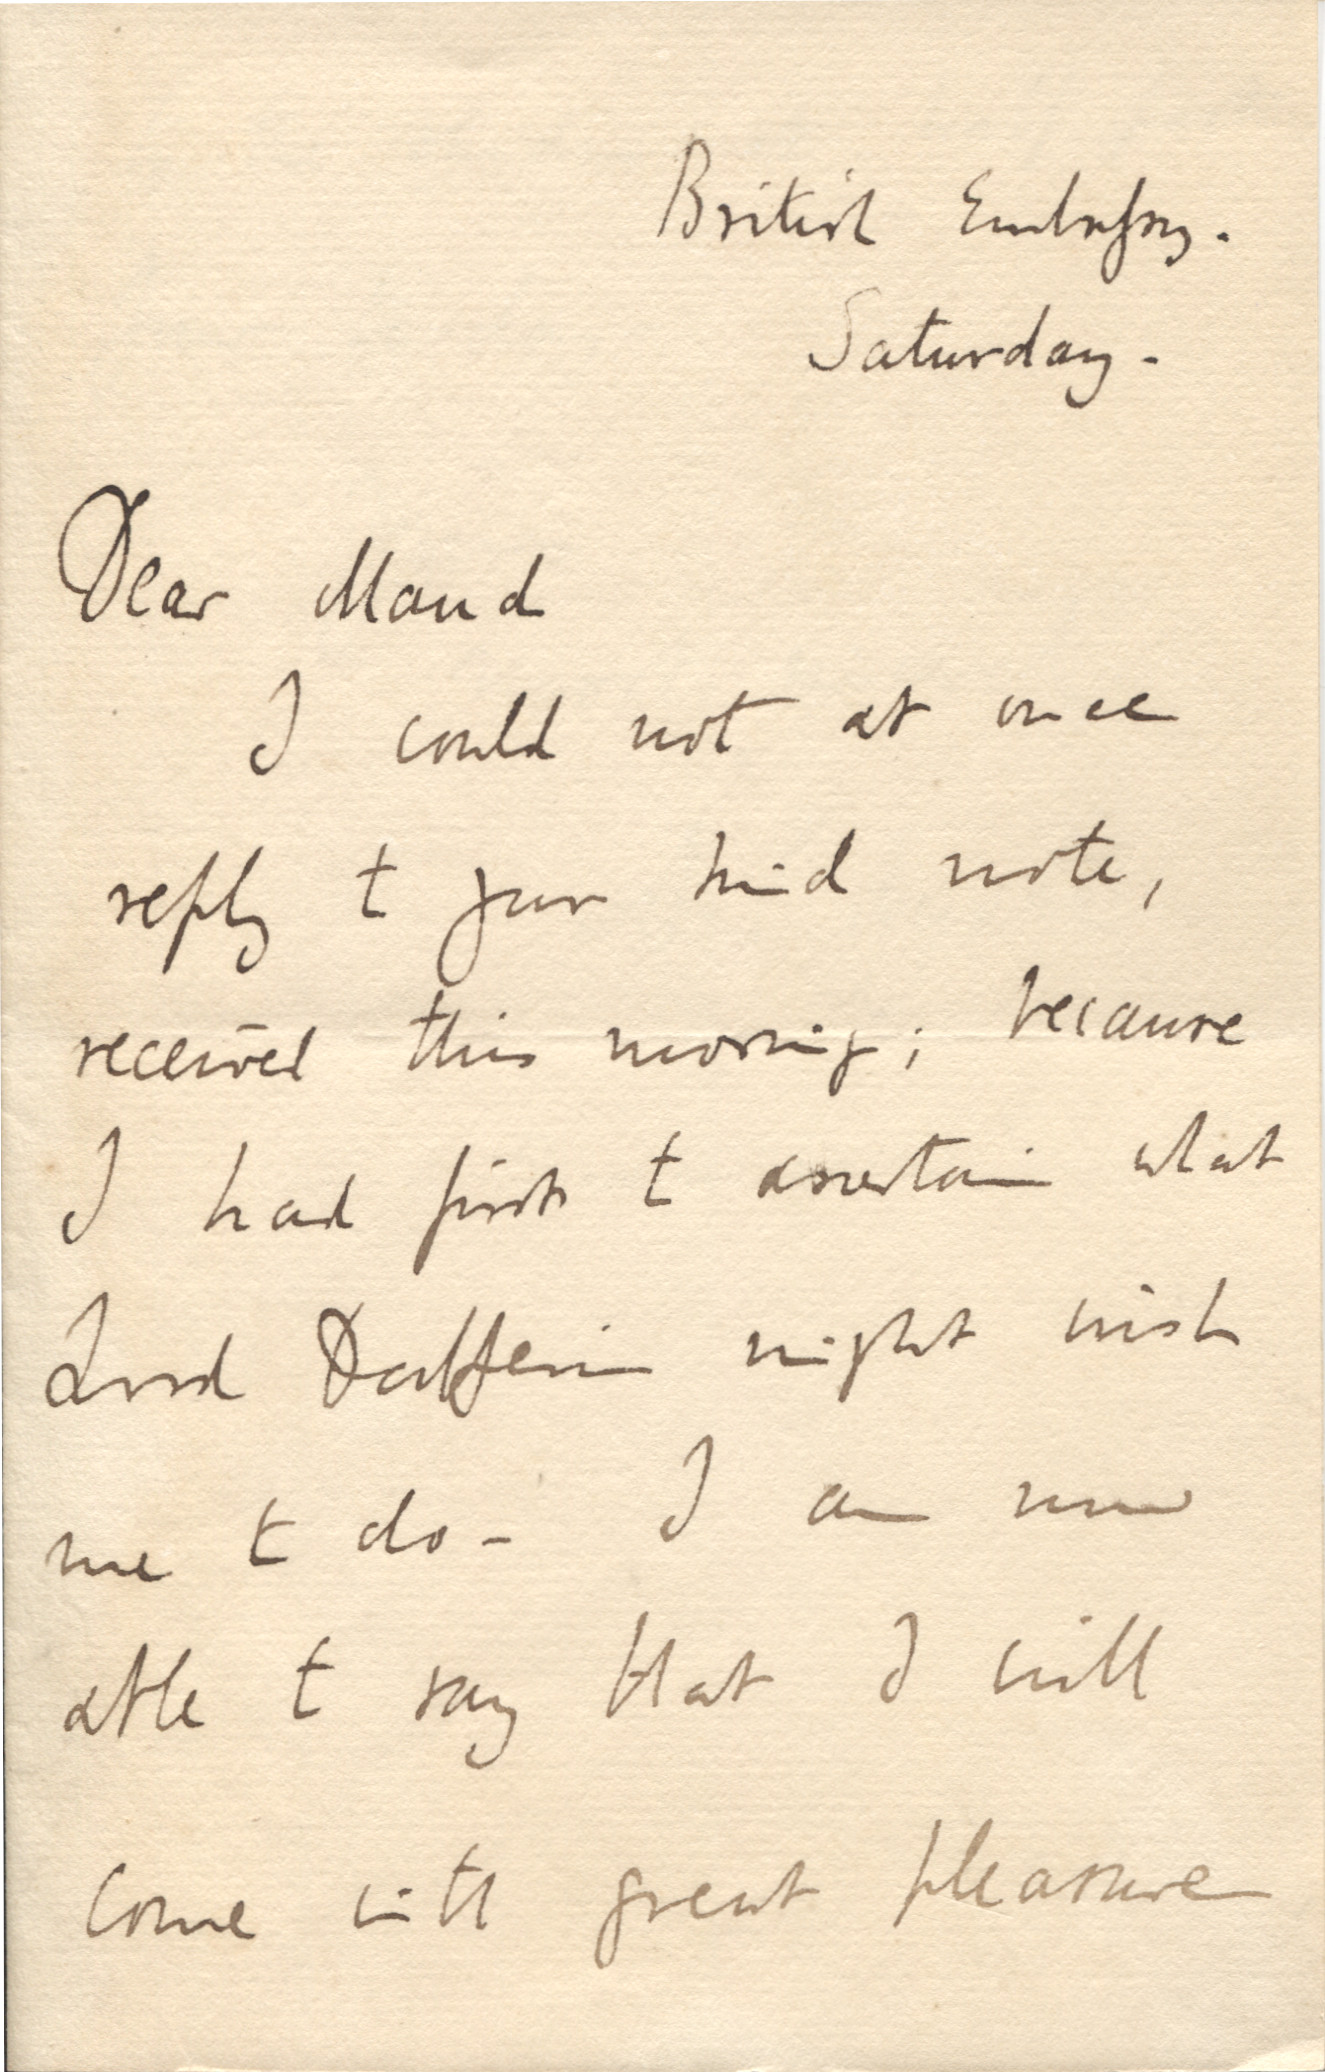 British Embassy.
Saturday.
Dear Maud
I could not at once
reply to your kind note,
received this morning; because
I had first to ascertain what
Lord Dufferin might wish
me to do - I am now
able to say that I will
come with great pleasure